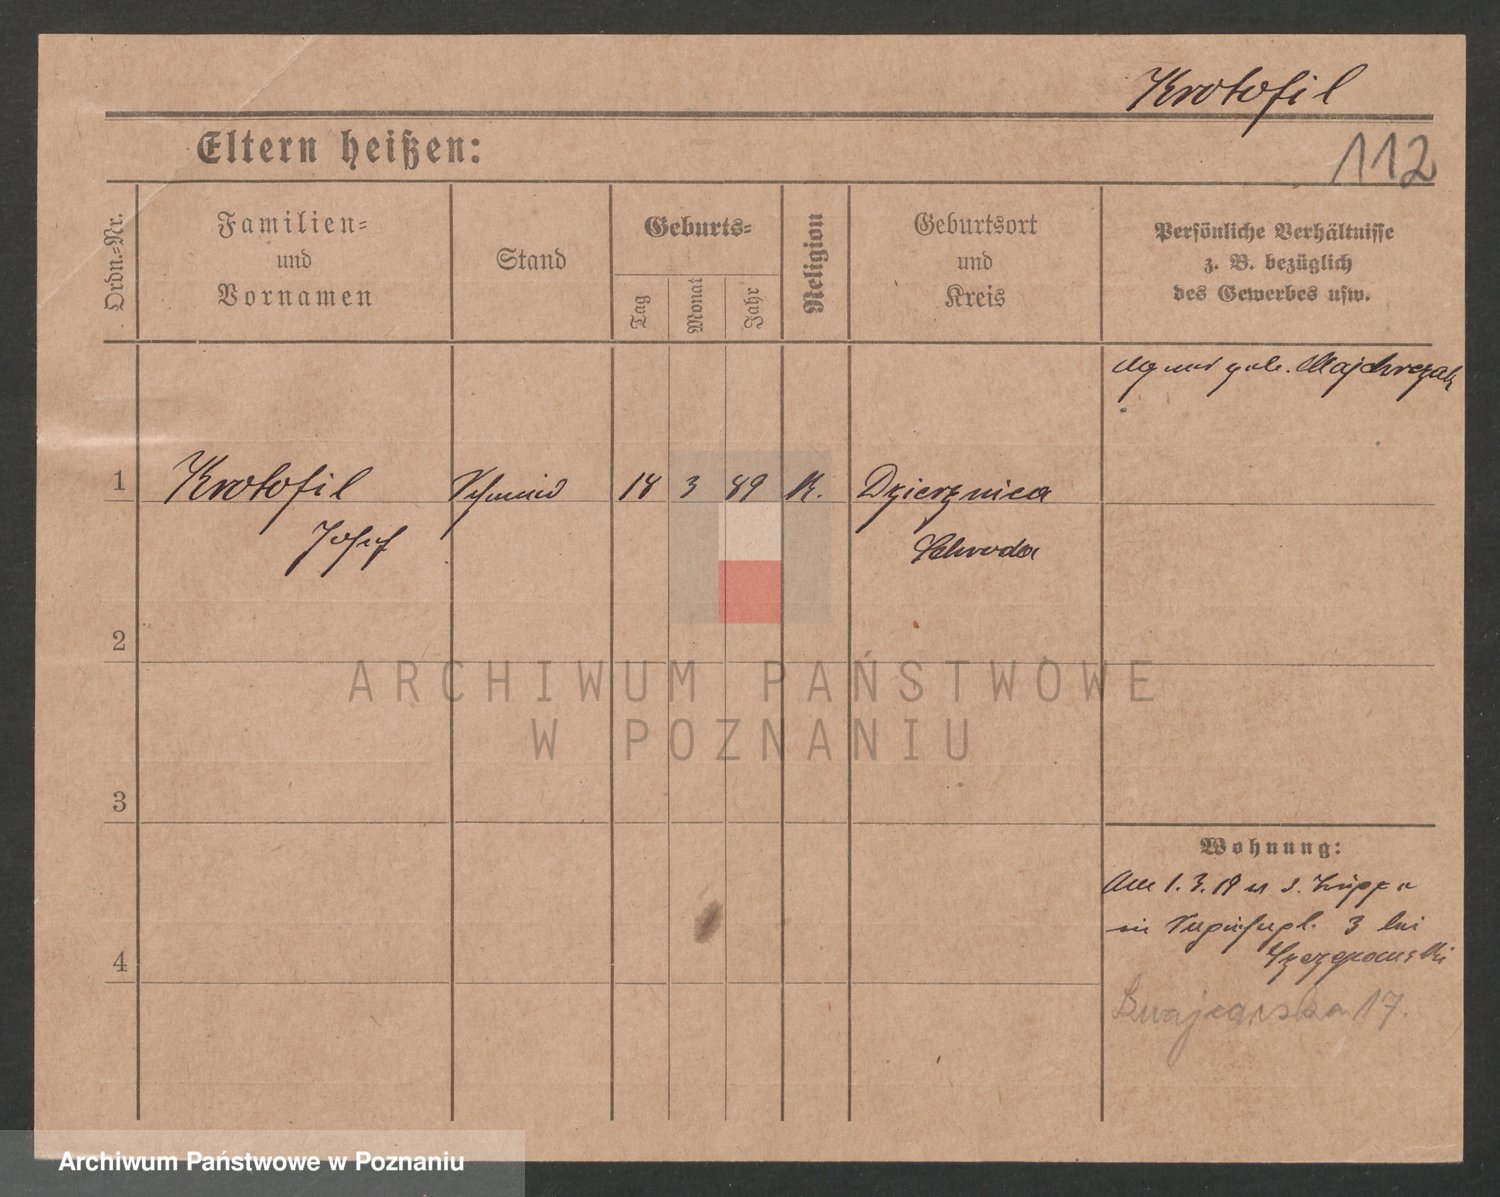 Krotofil
112
Eltern heißen:
Ordn.-Nr.
Familien-
und
Vornamen
Stand
Geburts-
Tag
Monat
Jahr
Religion
Geburtsort
und
Kreis
Persönliche Verhältnisse
z. B. bezüglich
des Gewerbes usw.
geb. Majchrzak
1
Krotofil
Schmied
18
3
89
K.
Dzierznica
Josef
Schroda
2
ARCHIWUM PAŃSTWOWE
W POZNANIU
3
Wohnung:
Am 1.3.19
3 bei
4
Szwajcarska 17.
Archiwum Państwowe w Poznaniu